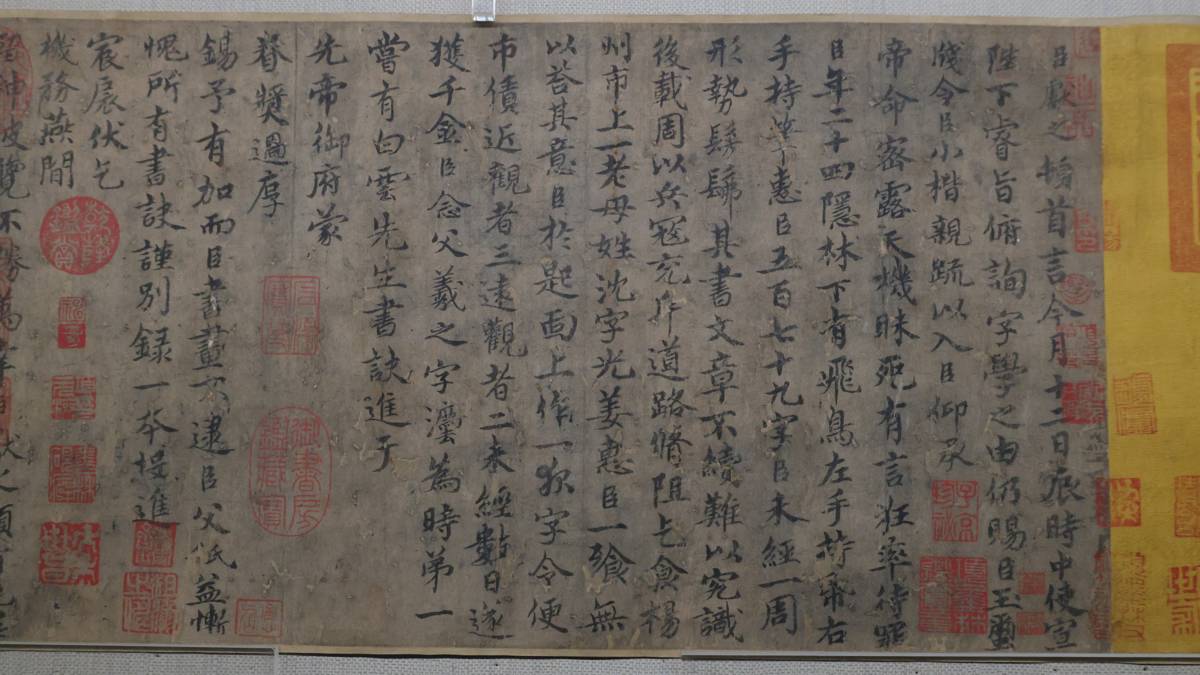 臣獻之頓首言今月十二日辰時中使宣
陛下睿旨俯詢字學之由仍賜臣玉璽
牋令臣小楷親疏以入臣仰承
帝命密露天機昧死有言狂率待罪
臣年二十四隱林下有飛鳥左手持帋右
手持筆惠臣五百七十九字臣未經一周
形勢髣髴其書文章不續難以究識
後載周以兵寇充斥道路脩阻乞食楊
州市上一老母姓沈字光姜惠臣一飡無
以荅其意臣於匙面上作一夜字令便
市債近觀者三遠觀者二未經數日遂
獲千金臣念父羲之字灋為時第一
嘗有白雲先生書訣進于
先帝御府蒙
眷奬過厚
錫予有加而臣書畫不逮臣父祇益慚
愧所有書訣謹別録一本投進
宸扆伏乞
機務燕閒
留神披覽不勝萬幸
乾隆鑑賞
御書房鑑藏寶